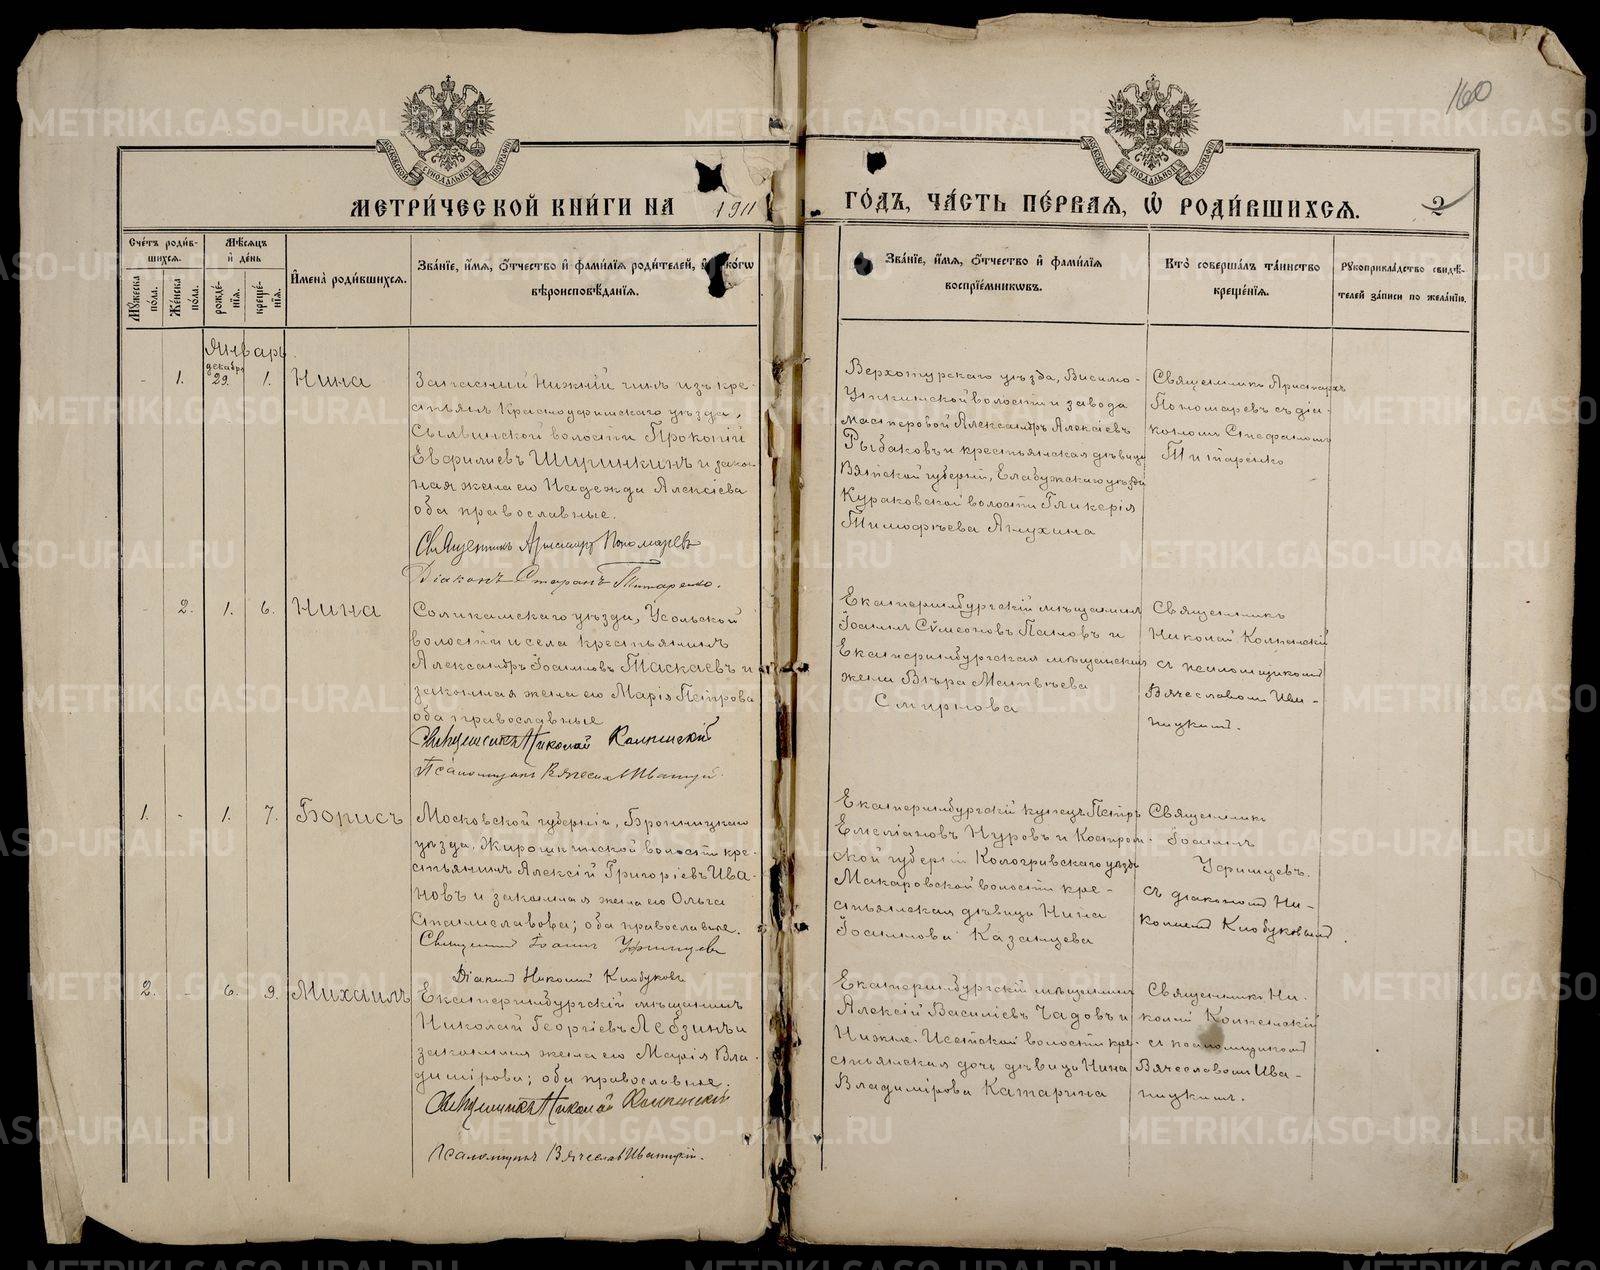 160
МОСКОВСКОЙ СУНОДАЛЬНОЙ ТИПОГРАФІИ
МОСКОВСКОЙ СУНОДАЛЬНОЙ ТИПОГРАФІИ
МЕТРИ́ЧЕСКОЙ КНИ́ГИ НА 1911
ГО́ДЪ, ЧА́СТЬ ПЕ́РВАЯ, Ѡ҆ РОДИ́ВШИХСЯ. 2
Сче́тъ роди́в-
шихся.
Мꙋ́жеска по́ла.
Же́нска по́ла.
Мѣ́сяцъ
и҆ де́нь
рожде́-нїя.
креще́-нїя.
И҆мена̀ роди́вшихся.
Зва́нїе, и҆́мя, ѻ҆́тчество и҆ фами́лїя роди́телей, и҆ ко́гѡ
вѣроисповѣ́данїя.
Зва́нїе, и҆́мя, ѻ҆́тчество и҆ фами́лїя
воспрїе́мникѡвъ.
Кто̀ соверша́лъ та́инство
креще́нїя.
Рꙋкоприкла́дство свидѣ́-
телей за́писи по жела́нїю.
Январь.
- 1. декабрь 29. 1. Нина
Запасный нижній чинъ изъ кре-
стьянъ Красноуфимскаго уѣзда,
Сылвинской волости Прокопій
Евфиміевъ Ширинкинъ и закон-
ная жена его Надежда Алексіева
оба православные.
Священникъ Аристархъ Пономаревъ
Діаконъ Стефанъ Титаренко.
Верхотурскаго уѣзда, Висимо-
Уткинской волости и завода
мастеровой Александръ Алексіевъ
Рыбаковъ и крестьянская дѣвица
Вятской губерніи, Елабужскаго уѣзда
Кураковской волости Гликерія
Тимофѣева Ячухина
Священникъ Аристархъ
Пономаревъ съ діа-
кономъ Стефаномъ
Титаренко
- 2. 1. 6. Нина
Соликамскаго уѣзда, Усольской
волости и села крестьянинъ
Александръ Іоанновъ Таскаевъ и
законная жена его Марія Петрова
оба православные
Священникъ Николай Колпенскій
Псаломщикъ Вячеслав Иваницкій.
Екатеринбургскій мѣщанинъ
Іоаннъ Сѵмеоновъ Пановъ и
Екатеринбургская мѣщанская
жена Вѣра Матвѣева
Смирнова
Священникъ
Николай Колпенскій
съ псаломщикомъ
Вячеславомъ Ива-
ницкимъ.
1. - 1. 7. Борисъ
Московской губерніи, Бронницкаго
уѣзда, Жирошкинской волости кре-
стьянинъ Алексій Григоріевъ Ива-
новъ и законная жена его Ольга
Станиславова; оба православные.
Священник Іоанн Уфимцевъ
Діакон Николай Кнобуковъ
Екатеринбургскій купецъ Петръ
Емеліановъ Нуровъ и Костром-
ской губерніи Кологривскаго уѣзда
Макаровской волости кре-
стьянская дѣвица Нина
Іоаннова Казанцева
Священникъ
Іоаннъ
Уфимцевъ.
съ діакономъ Ни-
колаемъ
2. - 6. 9. Михаилъ
Екатеринбургскій мѣщанинъ
Николай Георгіевъ Лебзинъ и
законная жена его Марія Вла-
димірова; оба православные.
Священникъ Николай Колпенскій
Псаломщикъ Вячеслав Иваницкій.
Екатеринбургскій мѣщанинъ
Алексій Василіевъ Чадовъ и
Нижне-Исетской волости кре-
стьянская дочь дѣвица Нина
Владимірова Катарина
Священникъ Ни-
колай Колпенскій
съ псаломщикомъ
Вячеславомъ Ива-
ницкимъ.
METRIKI.GASO-URAL.RU